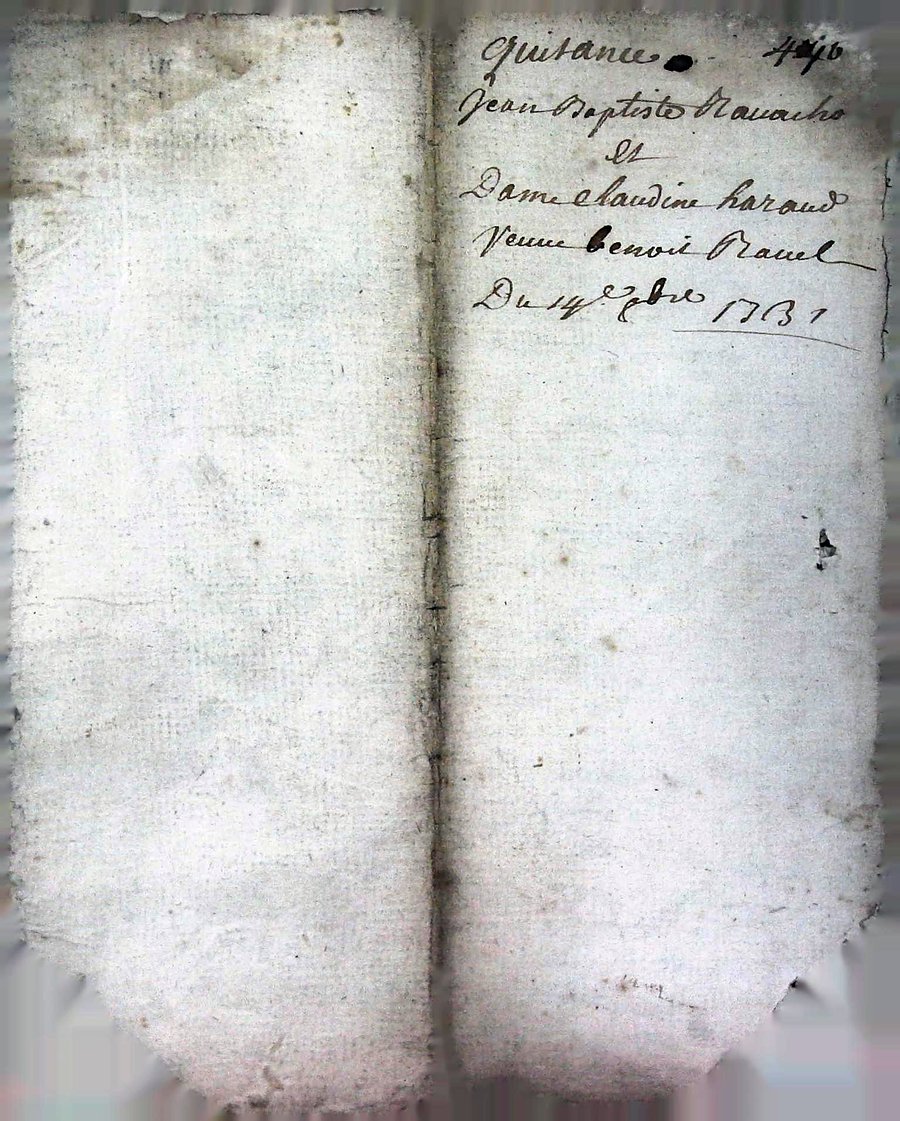 Quitance
Jean Baptiste Ravacho
et
Dame Claudine haraud
Veuve benoit Ravel
Du 14e 9bre 1731